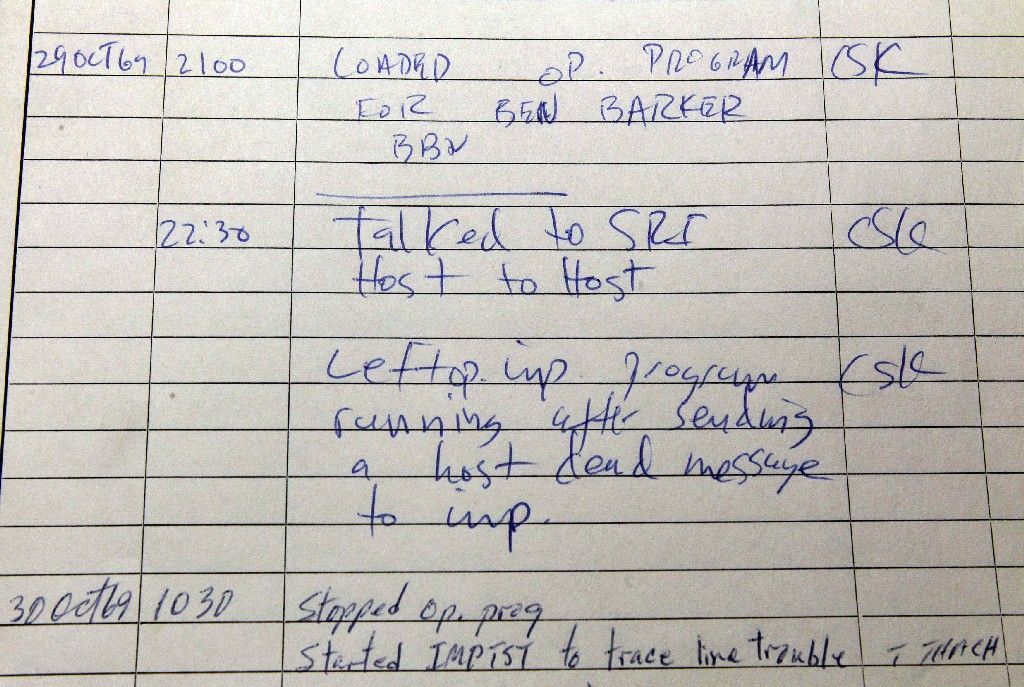 29OCT69 2100 LOADED OP. PROGRAM CSK
FOR BEN BARKER
BBN
22:30 Talked to SRI CSK
Host to Host
Left op. imp. program CSK
running after sending
a host dead message
to imp.
30 Oct 69 1030 Stopped op. prog
Started IMPTST to trace line trouble T THACH